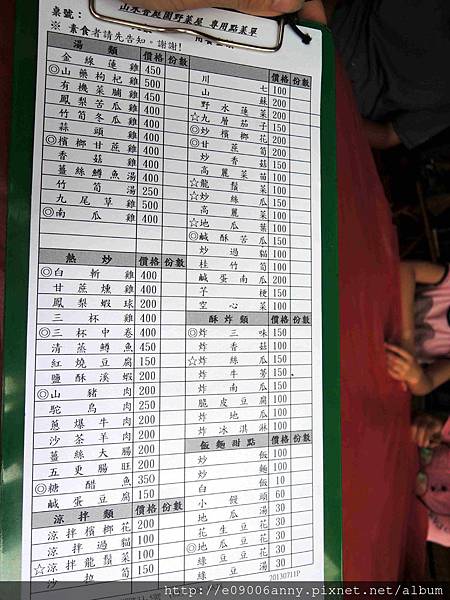 桌號:
山水香庭園野菜屋 專用點菜單
※ 素食者請先告知。謝謝!
湯 類 價格 份數
金線蓮雞 450
◎山藥枸杞雞 500
有機菜脯雞 450
鳳梨苦瓜雞 400
竹筍冬瓜雞 400
蒜頭雞 400
◎檳榔甘蔗雞 400
香菇雞 400
薑絲鱒魚湯 400
竹筍湯 250
九尾草雞 500
◎南瓜雞 400
熱 炒 價格 份數
◎白斬雞 400
甘蔗燻雞 400
鳳梨蝦球 200
三杯雞 400
◎三杯中卷 400
清蒸鱒魚 450
紅燒豆腐 150
鹽酥溪蝦 200
◎山豬肉 200
鴕鳥肉 250
蔥爆牛肉 200
沙茶羊肉 200
薑絲大腸 200
五更腸旺 200
◎糖醋魚 350
鹹蛋豆腐 150
涼拌類 價格 份數
涼拌檳榔花 200
涼拌過貓 100
☆涼拌龍鬚菜 100
沙拉筍 150
價格 份數
川七 100
山蘇 200
野水蓮菜 200
☆九層茄子 150
◎炒檳榔花 200
◎甘蔗筍 200
炒香菇 150
高麗菜苗 100
☆龍鬚菜 100
☆炒絲瓜 150
高麗菜 100
☆地瓜葉 100
◎鹹酥苦瓜 150
炒過貓 100
桂竹筍 100
鹹蛋南瓜 200
芋梗 150
空心菜 100
酥炸類 價格 份數
◎炸三味 150
炸香菇 100
☆炸絲瓜 150
炸牛蒡 150
炸南瓜 150
脆皮豆腐 100
炸地瓜 100
炸冰淇淋 100
飯麵甜點 價格 份數
炒飯 100
炒麵 100
白飯 10
小饅頭 60
地瓜湯 30
花生豆花 30
◎地瓜豆花 30
綠豆豆花 30
綠豆湯 30
20130711P
http://e09006anny.pixnet.net/album